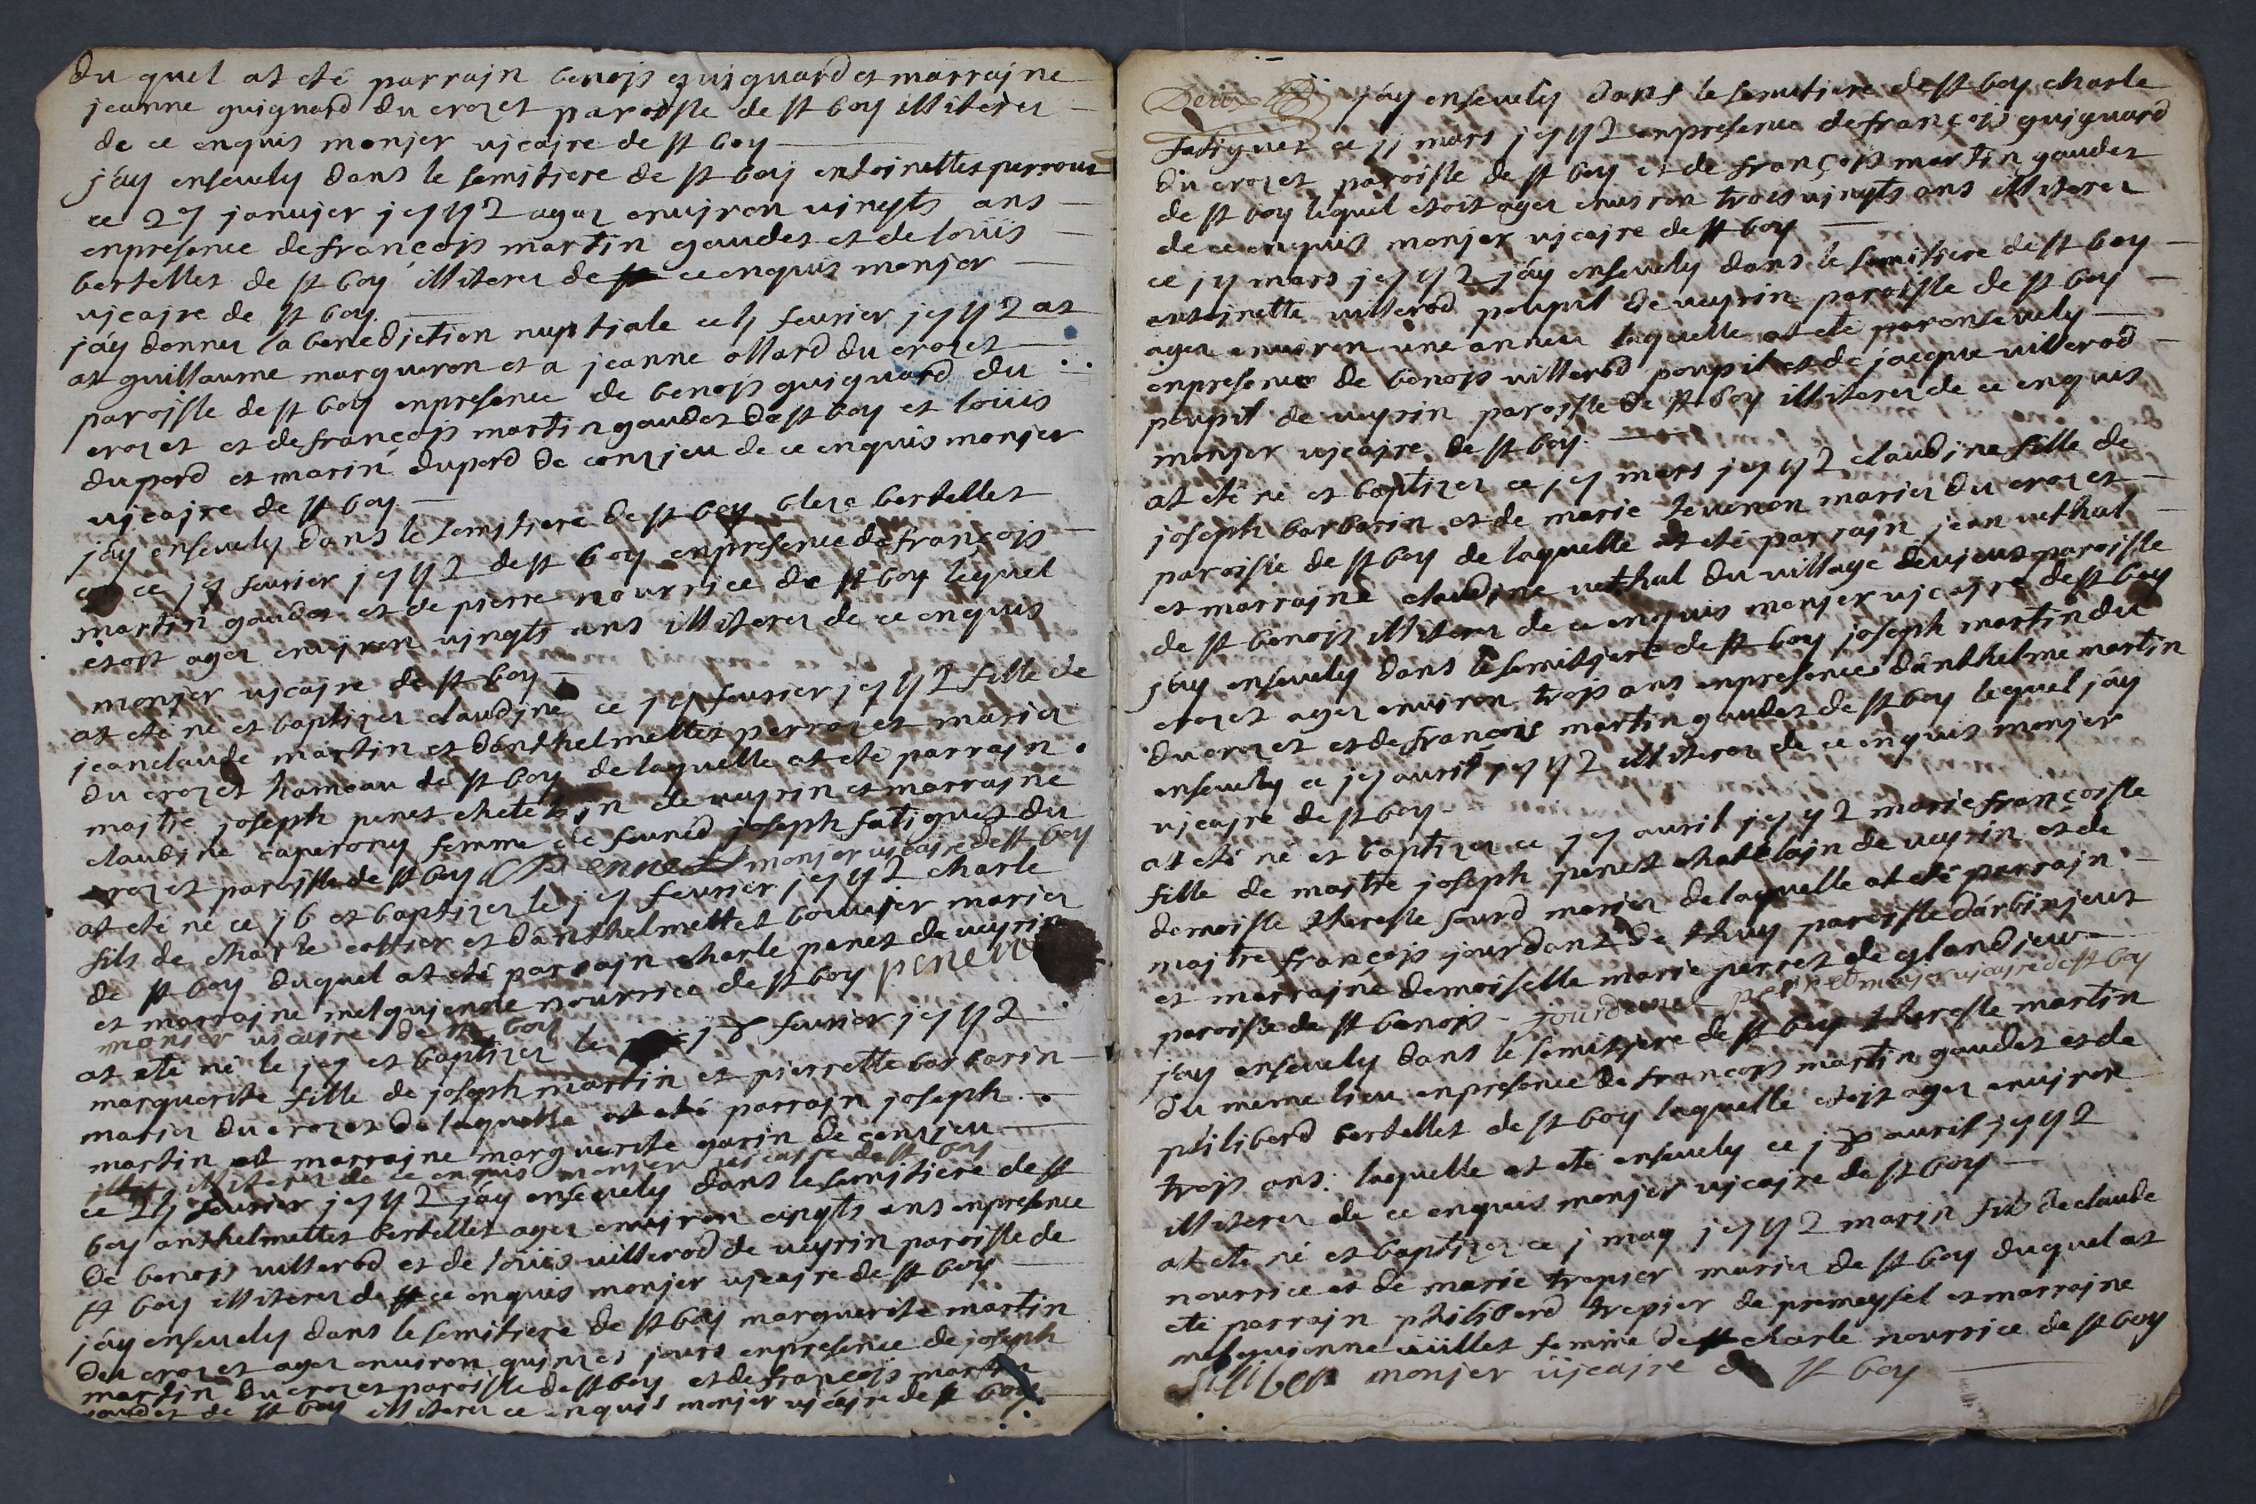 du quel at eté parrain benojs guiguard et marrajne
jeanne guignard du crozet paroisse de st boy illiterez
de ce enquis monjer vjcajre de st boy
j'áy ensevely dans le semitiere de st boy entoinettes perrout
ce 27 janvjer j712 agez envjron vjngts ans
enpresence de françojs martin gaudet et de loüis
bertellet de st boy illiterez de ce enquis monjer
vjcajre de st boy
j'áy donnez la benedjction nuptjale ce fevrier j712 at
at guillaume margueron et a jeanne ollard du crozet
parojsse de st boy enpresence de benojs guiguard du
crozet et de françojs martin gaudet de st boy et loüis
dupord et marin dupord de conzjeu de ce enquis monjer
vjcajre de st boy
j'áy ensevely dans le semitiere de st boy bertellet
ce j7 fevrier j712 de st boy enpresence de françojs
martin gaudet et de pierre nourrice de st boy lequel
etojt agez envjron vjngts ans illiterez de ce enquis
monjer vjcajre de st boy
at eté né et baptizez claudjne ce j7 fevrier j712 fille de
jeanclaude martin et d'ânthelmettes perrozet mariez
du crozet hameau de st boy de laquelle at eté parrajn
majtre joseph penet chetelajn de veyrin et marrajne
claudjne caperony femme de feuned joseph fatiguet du
crozet parojsse de st boy Pennet monjer vjcajre de st boy
at eté né ce j6 et baptizez le j7 fevrier j712 charle
fils de charle cottier et d'ânthelmettet bouvjer mariez
de st boy duquel at eté parrajn charle penet de veyrin
et marrajne melquienne nourrice de st boy penet
monjer vicajre de st boy
at eté né le j7 et baptizez le j8 fevrier j712
marguerite fille de joseph martin et pierrette barbarin
mariez du crozet de laquelle at eté parrajn joseph
martin et marrajne marguerite garin de conzjeu
illiterez de ce enquis monjer vjcajre de st boy
ce fevrier j712 j'áy ensevely dans le semitiere de st
boy anthelmettes bertellet agez envjron vjngts ans enpresence
de benojs villerod et de loüis villerod de veyrin parojsse de
st boy illiterez de ce enquis monjer vjcajre de st boy
j'áy ensevely dans le semitiere de st boy marguerite martin
du crozet agez environ quinzes jours enpresence de joseph
martin du crozet parojsse de st boy et de françojs martin
gaudet de st boy illiterez ce enquis monjer vjcájre de st boy
Deux j'áy ensevely dans le semitiere de st boy charle
fatiguet ce jj mars j712 enpresence de françojs guiguard
du crozet parojsse de st boy et de françojs martin gaudet
de st boy lequel etojt agez environ trojs vjngts ans illiterez
de ce enquis monjer vjcajre de st boy
ce mars j712 j'áy ensevely dans le semitiere de st boy
antojnette villerod poupit de veyrin parojsse de st boy
agez environ une annez laquelle at eté par ensevely
enpresence de benojs villerod poupit et de jacque villerod
poupit de veyrin parojsse de st boy illiterez de ce enquis
monjer vjcajre de st boy
at eté né et baptizez ce j7 mars j712 claudjne fille de
joseph barbarin et de marie tevenon mariez du crozet
parojsse de st boy de laquelle at eté parrajn jean vethal
et marrajne claudjne vethal du village paroisse
de st benojs illiterez de ce enquis monjer vjcajre de st boy
j'áy ensevely dans le semitjere de st boy joseph martin du
crozet agez environ trojs ans enpresence d'ânthelme martin
du crozet et de françojs martin gaudet de st boy lequel j'áy
ensevely ce j7 avril j712 illiterez de ce enquis monjer
vjcajre de st boy
at eté né et baptizez ce j7 avril j712 marie françojsse
fille de majtre joseph penet chatelajn de veyrin et de
demojsle theresse sourd mariez de laquelle at eté parrajn
majtre françojs jourdant de thuy parojsse d'árbinjeux
et marrajne demojselle marie perret de glandjeu
parojsse de st benojs jourdan perret monjer vjcajre de st boy
j'áy ensevely dans le semitjere de st boy theresse martin
du meme lieu enpresence de françojs martin gaudet et de
philiberd bertellet de st boy laquelle etojt agez envjron
trojs ans laquelle at eté ensevely ce j8 avril j712
illiterez de ce enquis monjer vjcajre de st boy
at eté né et baptizez ce j may j712 marin fils de claude
nourrice et de marie trepier mariez de st boy duquel at
eté parrajn philiberd trepjer de premeysel et marrajne
melquienne femme de charle nourrice de st boy
monjer vjcajre de st boy